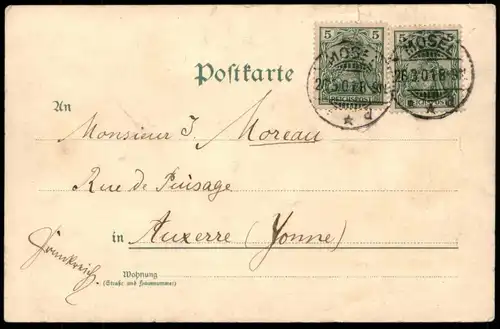 5 5
REICHSPOST
MOSEL
MOSEL
Postkarte
An
Monsieur J. Moreau
Rue de Puisage
in Auxerre (Yonne)
Frankreich.
Wohnung
(Straße und Hausnummer)